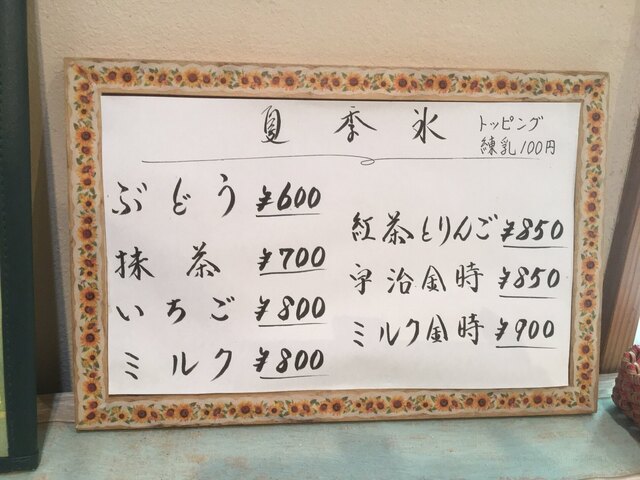 夏季氷
トッピング
練乳100円
ぶどう ¥600
抹茶 ¥700
いちご ¥800
ミルク ¥800
紅茶とりんご ¥850
宇治金時 ¥850
ミルク金時 ¥900